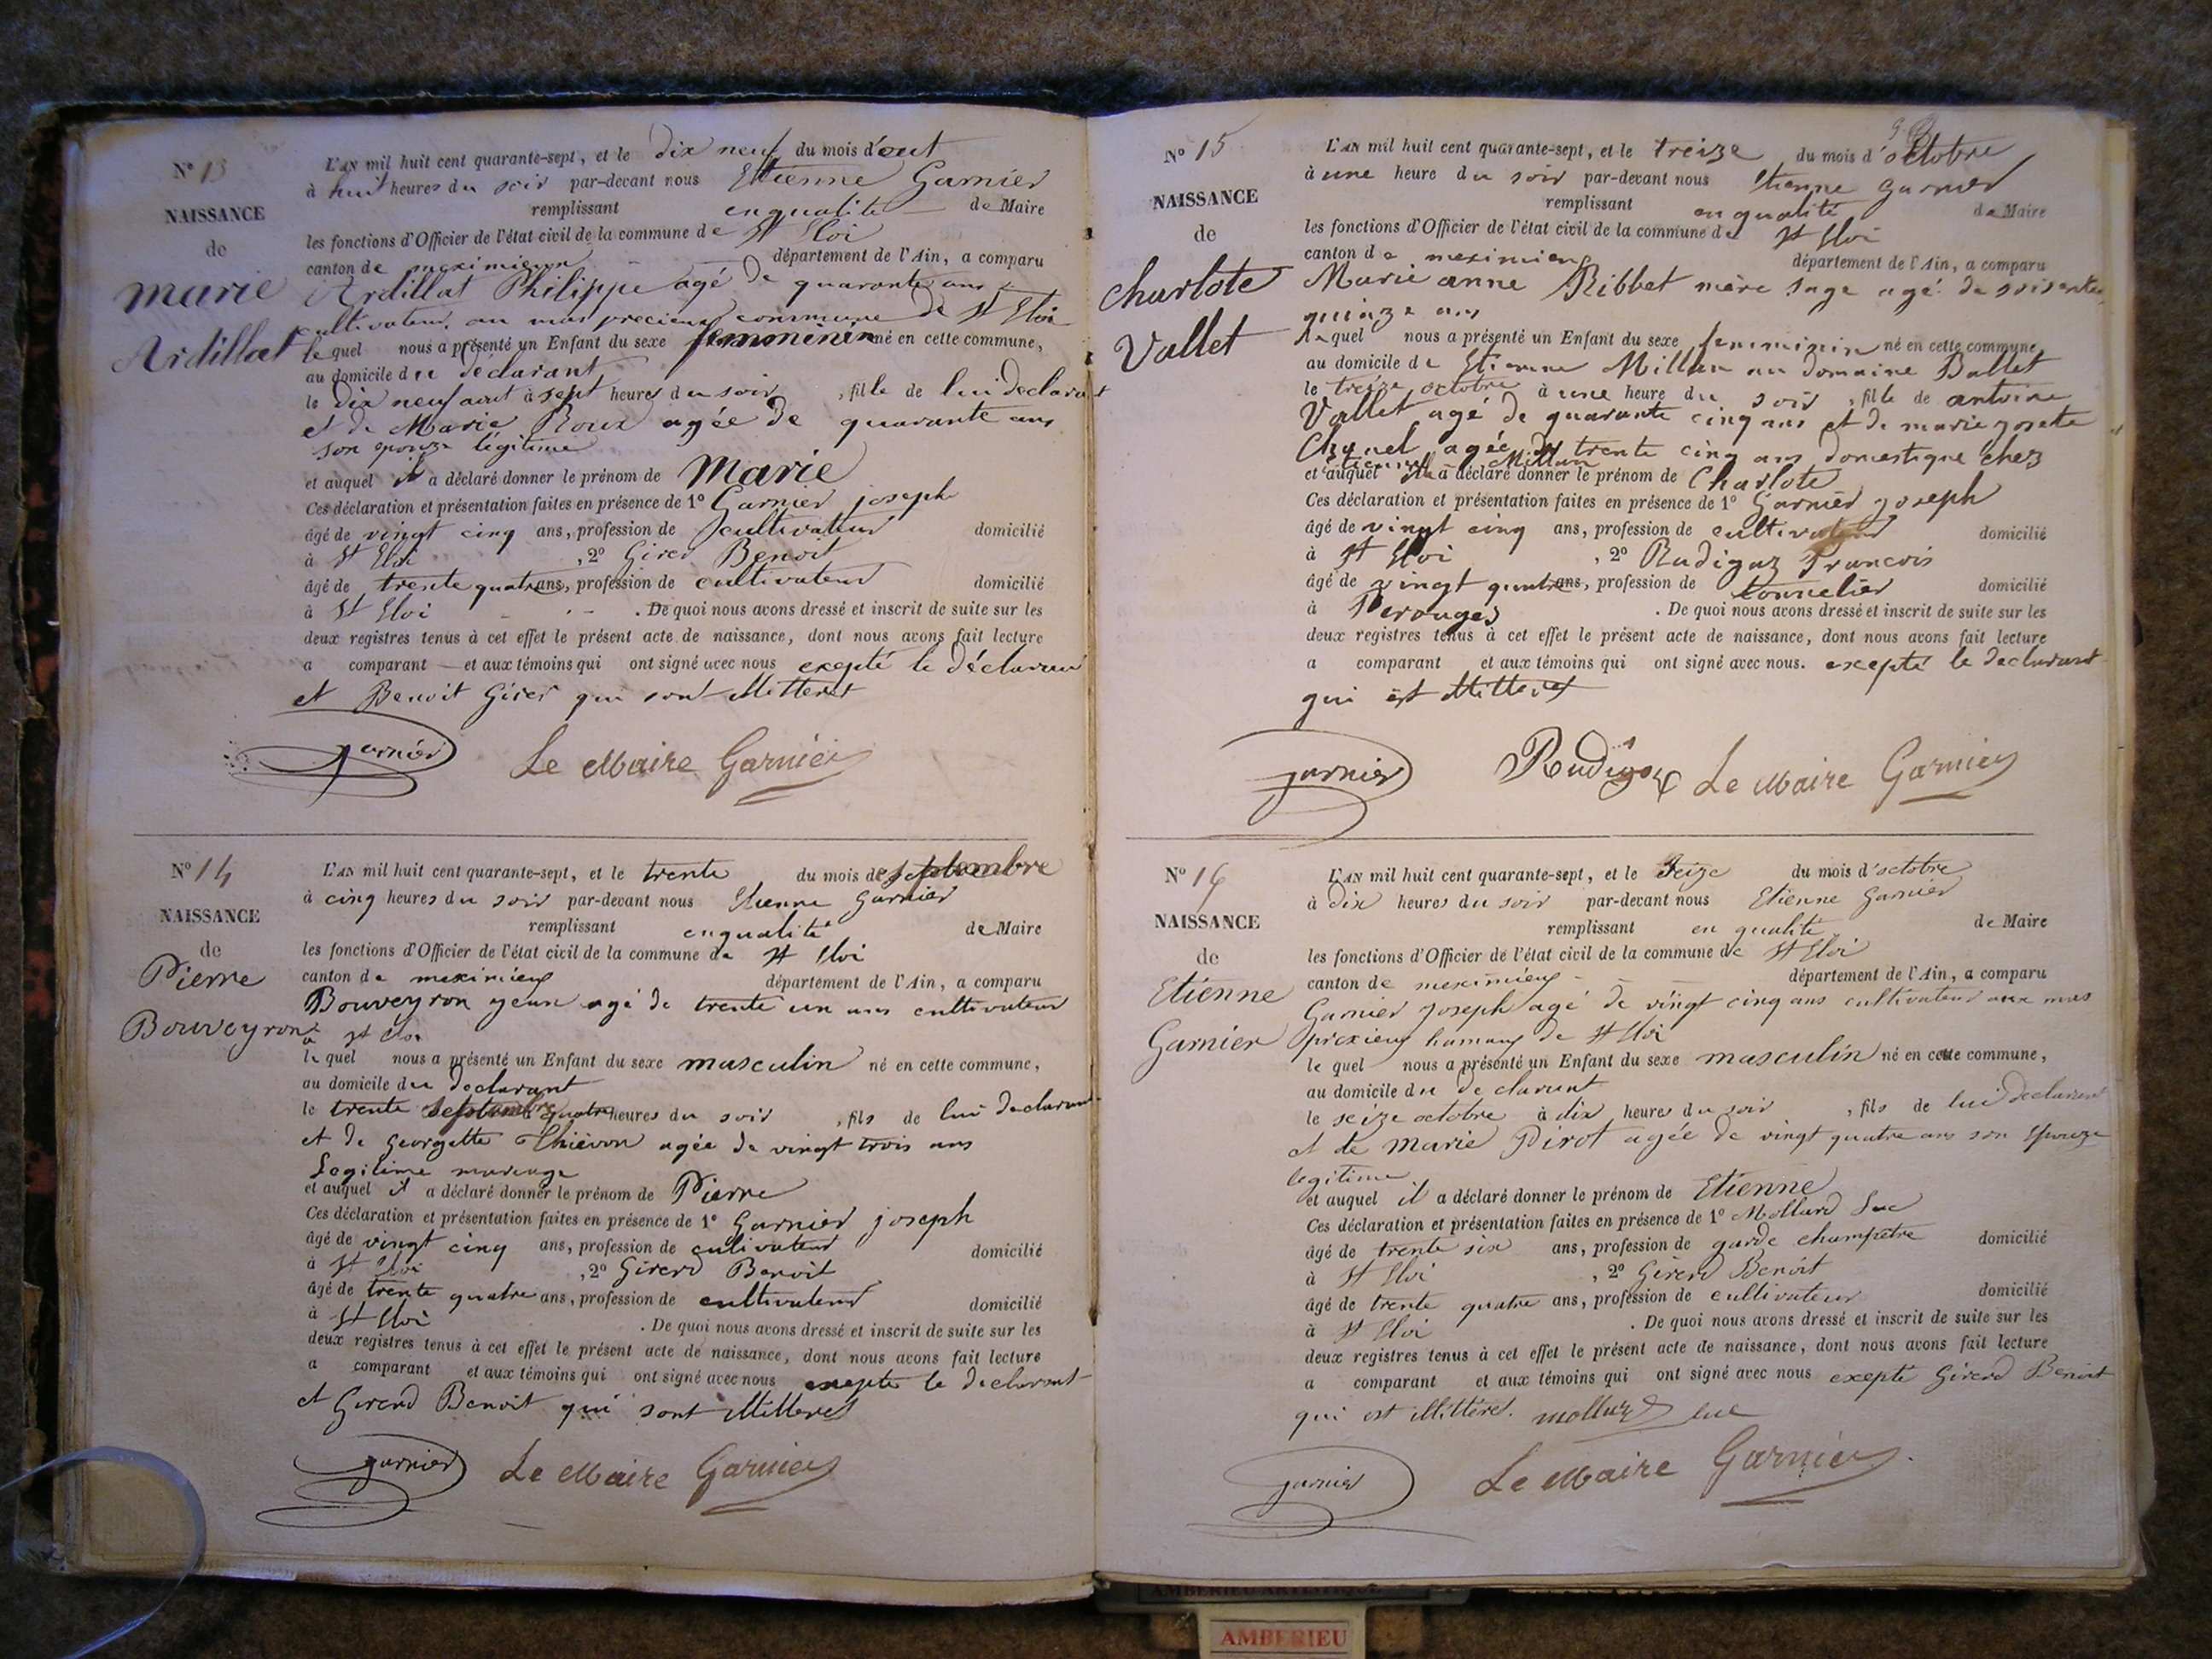 N° 13
NAISSANCE
de
marie
Ardillat
L'AN mil huit cent quarante-sept, et le dix neuf du mois d'out
à huit heures du soir par-devant nous Etienne Garnier
remplissant enqualité de Maire
les fonctions d'Officier de l'état civil de la commune de St Eloi
canton de meximieux département de l'Ain, a comparu
Ardillat Philippe agé de quarante ans
cultivateur au mas precieux commune de St Eloi
le quel nous a présenté un Enfant du sexe femminin né en cette commune,
au domicile du declarant
le dix neuf aout à sept heures du soir, fille de lui declarant
et de Marie Roux agée de quarante ans
son epouze légitime
et auquel il a déclaré donner le prénom de Marie
Ces déclaration et présentation faites en présence de 1° Garnier joseph
âgé de vingt cinq ans, profession de cultivateur domicilié
à St Eloi, 2° Girer Benoit
âgé de trente quatre ans, profession de cultivateur domicilié
à St Eloi. De quoi nous avons dressé et inscrit de suite sur les
deux registres tenus à cet effet le présent acte de naissance, dont nous avons fait lecture
a comparant et aux témoins qui ont signé avec nous exepté le déclarant
et Benoit Girer qui sont illitteret
garnier Le Maire Garnier
N° 14
NAISSANCE
de
Pierre
Bouveyron
L'AN mil huit cent quarante-sept, et le trente du mois de septembre
à cinq heures du soir par-devant nous Etienne Garnier
remplissant enqualité de Maire
les fonctions d'Officier de l'état civil de la commune de St Eloi
canton de meximieux département de l'Ain, a comparu
Bouveyron jean agé de trente un ans cultivateur
a St Eloi
le quel nous a présenté un Enfant du sexe masculin né en cette commune,
au domicile du declarant
le trente septembre quatre heures du soir, fils de lui declarant
et de georgette Thiévon agée de vingt trois ans
Legitime mariage
et auquel il a déclaré donner le prénom de Pierre
Ces déclaration et présentation faites en présence de 1° Garnier joseph
âgé de vingt cinq ans, profession de cultivateur domicilié
à St Eloi, 2° Girerd Benoit
âgé de trente quatre ans, profession de cultivateur domicilié
à St Eloi. De quoi nous avons dressé et inscrit de suite sur les
deux registres tenus à cet effet le présent acte de naissance, dont nous avons fait lecture
a comparant et aux témoins qui ont signé avec nous exepté le declarant
et Girerd Benoit qui sont illitteret
garnier Le Maire Garnier
N° 15
NAISSANCE
de
Charlote
Vallet
L'AN mil huit cent quarante-sept, et le treize du mois d'octobre
à une heure du soir par-devant nous Etienne garnier
remplissant en qualité de Maire
les fonctions d'Officier de l'état civil de la commune de St Eloi
canton de meximieux département de l'Ain, a comparu
Marie anne Ribbet mère sage agé de soisente
quinze ans
le quel nous a présenté un Enfant du sexe femminin né en cette commune,
au domicile de Etienne Millan au domaine Ballet
le treize octobre à une heure du soir, fille de antoine
Vallet agé de quarante cinq ans et de marie josete
Chanel agée de trente cinq ans domestique chez
etienne Millan
et auquel elle a déclaré donner le prénom de Charlote
Ces déclaration et présentation faites en présence de 1° Garnier joseph
âgé de vingt cinq ans, profession de cultivateur domicilié
à St Eloi, 2° Rudigoz Francois
âgé de vingt quatre ans, profession de tonnelier domicilié
à Perouges. De quoi nous avons dressé et inscrit de suite sur les
deux registres tenus à cet effet le présent acte de naissance, dont nous avons fait lecture
a comparant et aux témoins qui ont signé avec nous. excepté le declarant
qui est illitteret
garnier Rudigoz Le Maire Garnier
N° 16
NAISSANCE
de
Etienne
Garnier
L'AN mil huit cent quarante-sept, et le seize du mois d'octobre
à dix heures du soir par-devant nous Etienne Garnier
remplissant en qualité de Maire
les fonctions d'Officier de l'état civil de la commune de St Eloi
canton de meximieux département de l'Ain, a comparu
Garnier joseph agé de vingt cinq ans cultivateur aux mas
prexieux hamaux de St Eloi
le quel nous a présenté un Enfant du sexe masculin né en cette commune,
au domicile du declarant
le seize octobre à dix heures du soir, fils de lui declarant
et de marie Pirot agée de vingt quatre ans son epouze
legitime
et auquel il a déclaré donner le prénom de Etienne
Ces déclaration et présentation faites en présence de 1° Mollard Luc
âgé de trente six ans, profession de garde champetre domicilié
à St Eloi, 2° Girerd Benoit
âgé de trente quatre ans, profession de cultivateur domicilié
à St Eloi. De quoi nous avons dressé et inscrit de suite sur les
deux registres tenus à cet effet le présent acte de naissance, dont nous avons fait lecture
a comparant et aux témoins qui ont signé avec nous excepté Girerd Benoit
qui est illitteret. mollard luc
garnier Le Maire Garnier
AMBERIEU